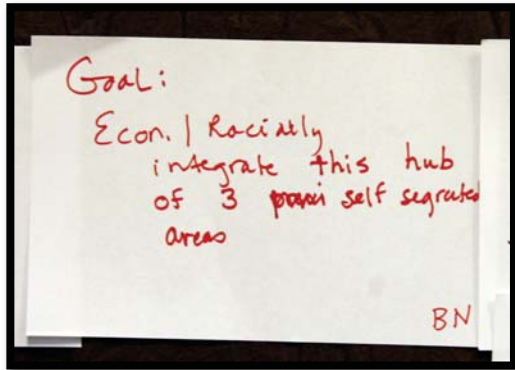 Goal:
Econ. | Racially
integrate this hub
of 3 self segrated
areas
BN